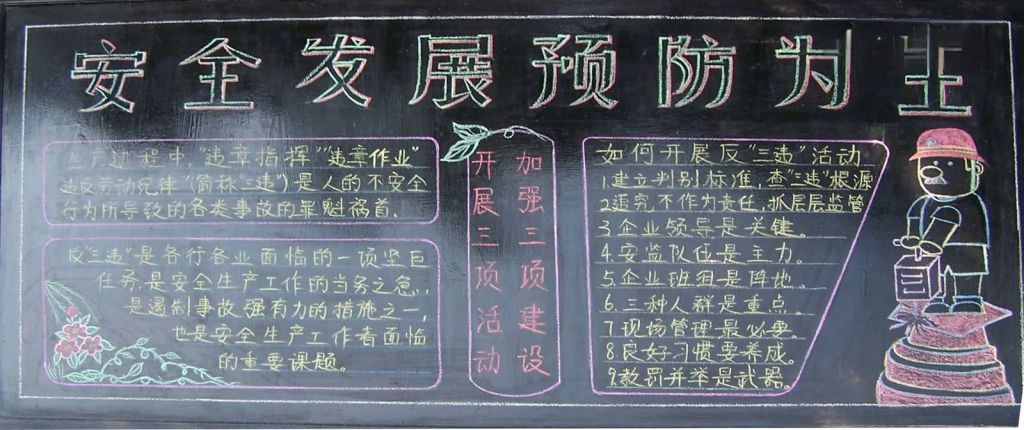 安全发展预防为主
生产过程中,"违章指挥""违章作业"
违反劳动纪律"(简称"三违")是人的不安全
行为所导致的各类事故的罪魁祸首.
反"三违"是各行各业面临的一项坚巨
任务,是安全生产工作的当务之急.,
是遏制事故强有力的措施之一,
也是安全生产工作者面临
的重要课题。
开展三项活动
加强三项建设
如何开展反"三违"活动
1.建立判别标准,查"三违"根源
2追究不作为责任,抓层层监管
3企业领导是关键。
4.安监队伍是主力。
5.企业班组是阵地。
6.三种人群是重点。
7现场管理最必要。
8.良好习惯要养成。
9教罚并举是武器。